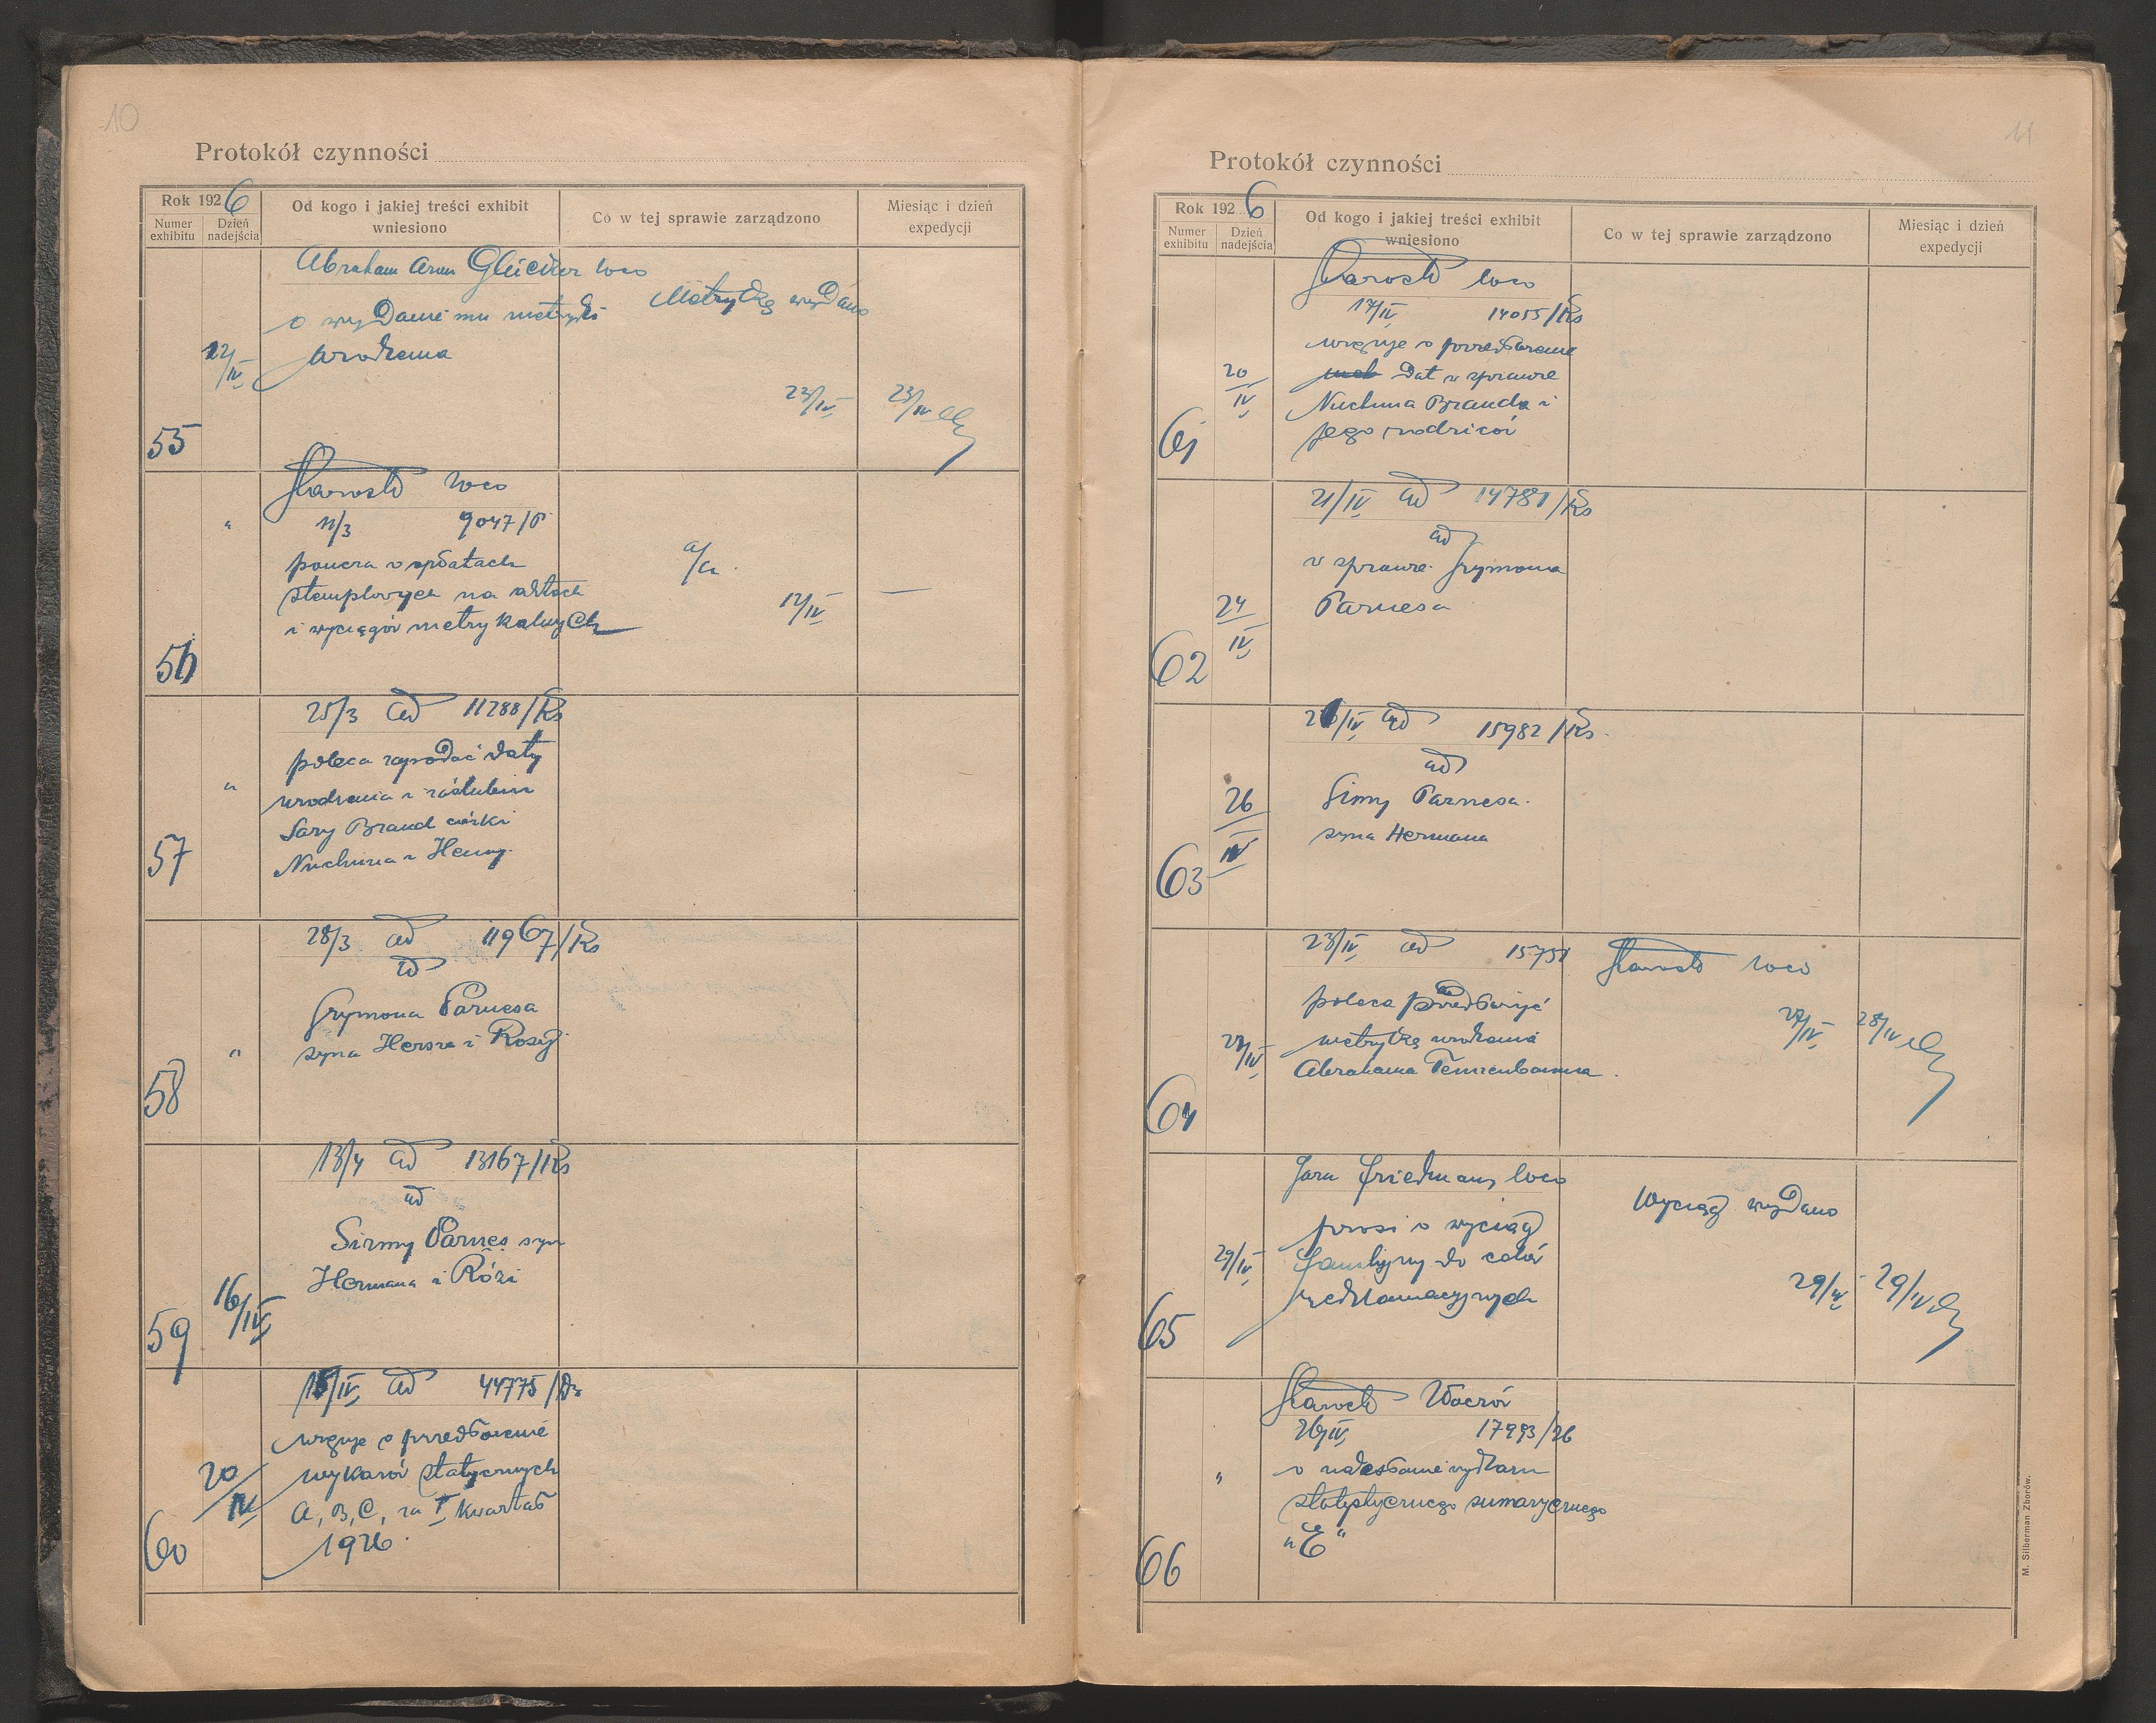 10
Protokół czynności
Rok 1926
Numer exhibitu
Dzień nadejścia
Od kogo i jakiej treści exhibit wniesiono
Co w tej sprawie zarządzono
Miesiąc i dzień expedycji
Abraham Aron Gleicher loco
o wydanie mu metryki
urodzenia
12/IV
55
Metrykę wydano
23/IV
23/IV
Starostwo loco
11/3 9047/
poucza o opłatach
stemplowych na aktach
i wyciągów metrykalnych
"
56
a/a.
12/IV
—
25/3 ad 11288/Ks
poleca zapodać daty
urodzenia i zaślubin
Sary Brand córki
Nuchima i Heny.
"
57
28/3 ad 11967/Ks
ad
Szymona Parnesa
syna Hersza i Rosy
"
58
13/4 ad 13167/Ks
ad
Simy Parnes syn
Hermana i Rózi
16/IV
59
15/IV ad 44775/
urguje o przedłożenie
wykazów statycznych
A, B, C, za I kwartał
1926.
20/IV
60
11
Protokół czynności
Rok 1926
Numer exhibitu
Dzień nadejścia
Od kogo i jakiej treści exhibit wniesiono
Co w tej sprawie zarządzono
Miesiąc i dzień expedycji
Starostwo loco
17/IV 14055/Ks
urguje o przedłożenie
dat w sprawie
Nuchima Branda i
jego rodziców
20/IV
61
21/IV ad 14781/Ks
ad
w sprawie Szymona
Parnesa
24/IV
62
ad 15982/Ks.
ad
Simy Parnesa.
syna Hermana
26/IV
63
23/IV ad 15751
poleca przedłożyć
metrykę urodzenia
Abrahama Tennenbauma.
27/IV
64
Starostwo loco
27/IV
28/IV
Sara Friedmann loco
prosi o wyciąg
familijny do celów
reklamacyjnych
29/IV
65
Wyciąg wydano
29/IV
29/IV
Starostwo Złoczów
26/IV 17993/26
o nadesłanie wykazu
statystycznego sumarycznego
"E"
"
66
M. Silberman Zborów.